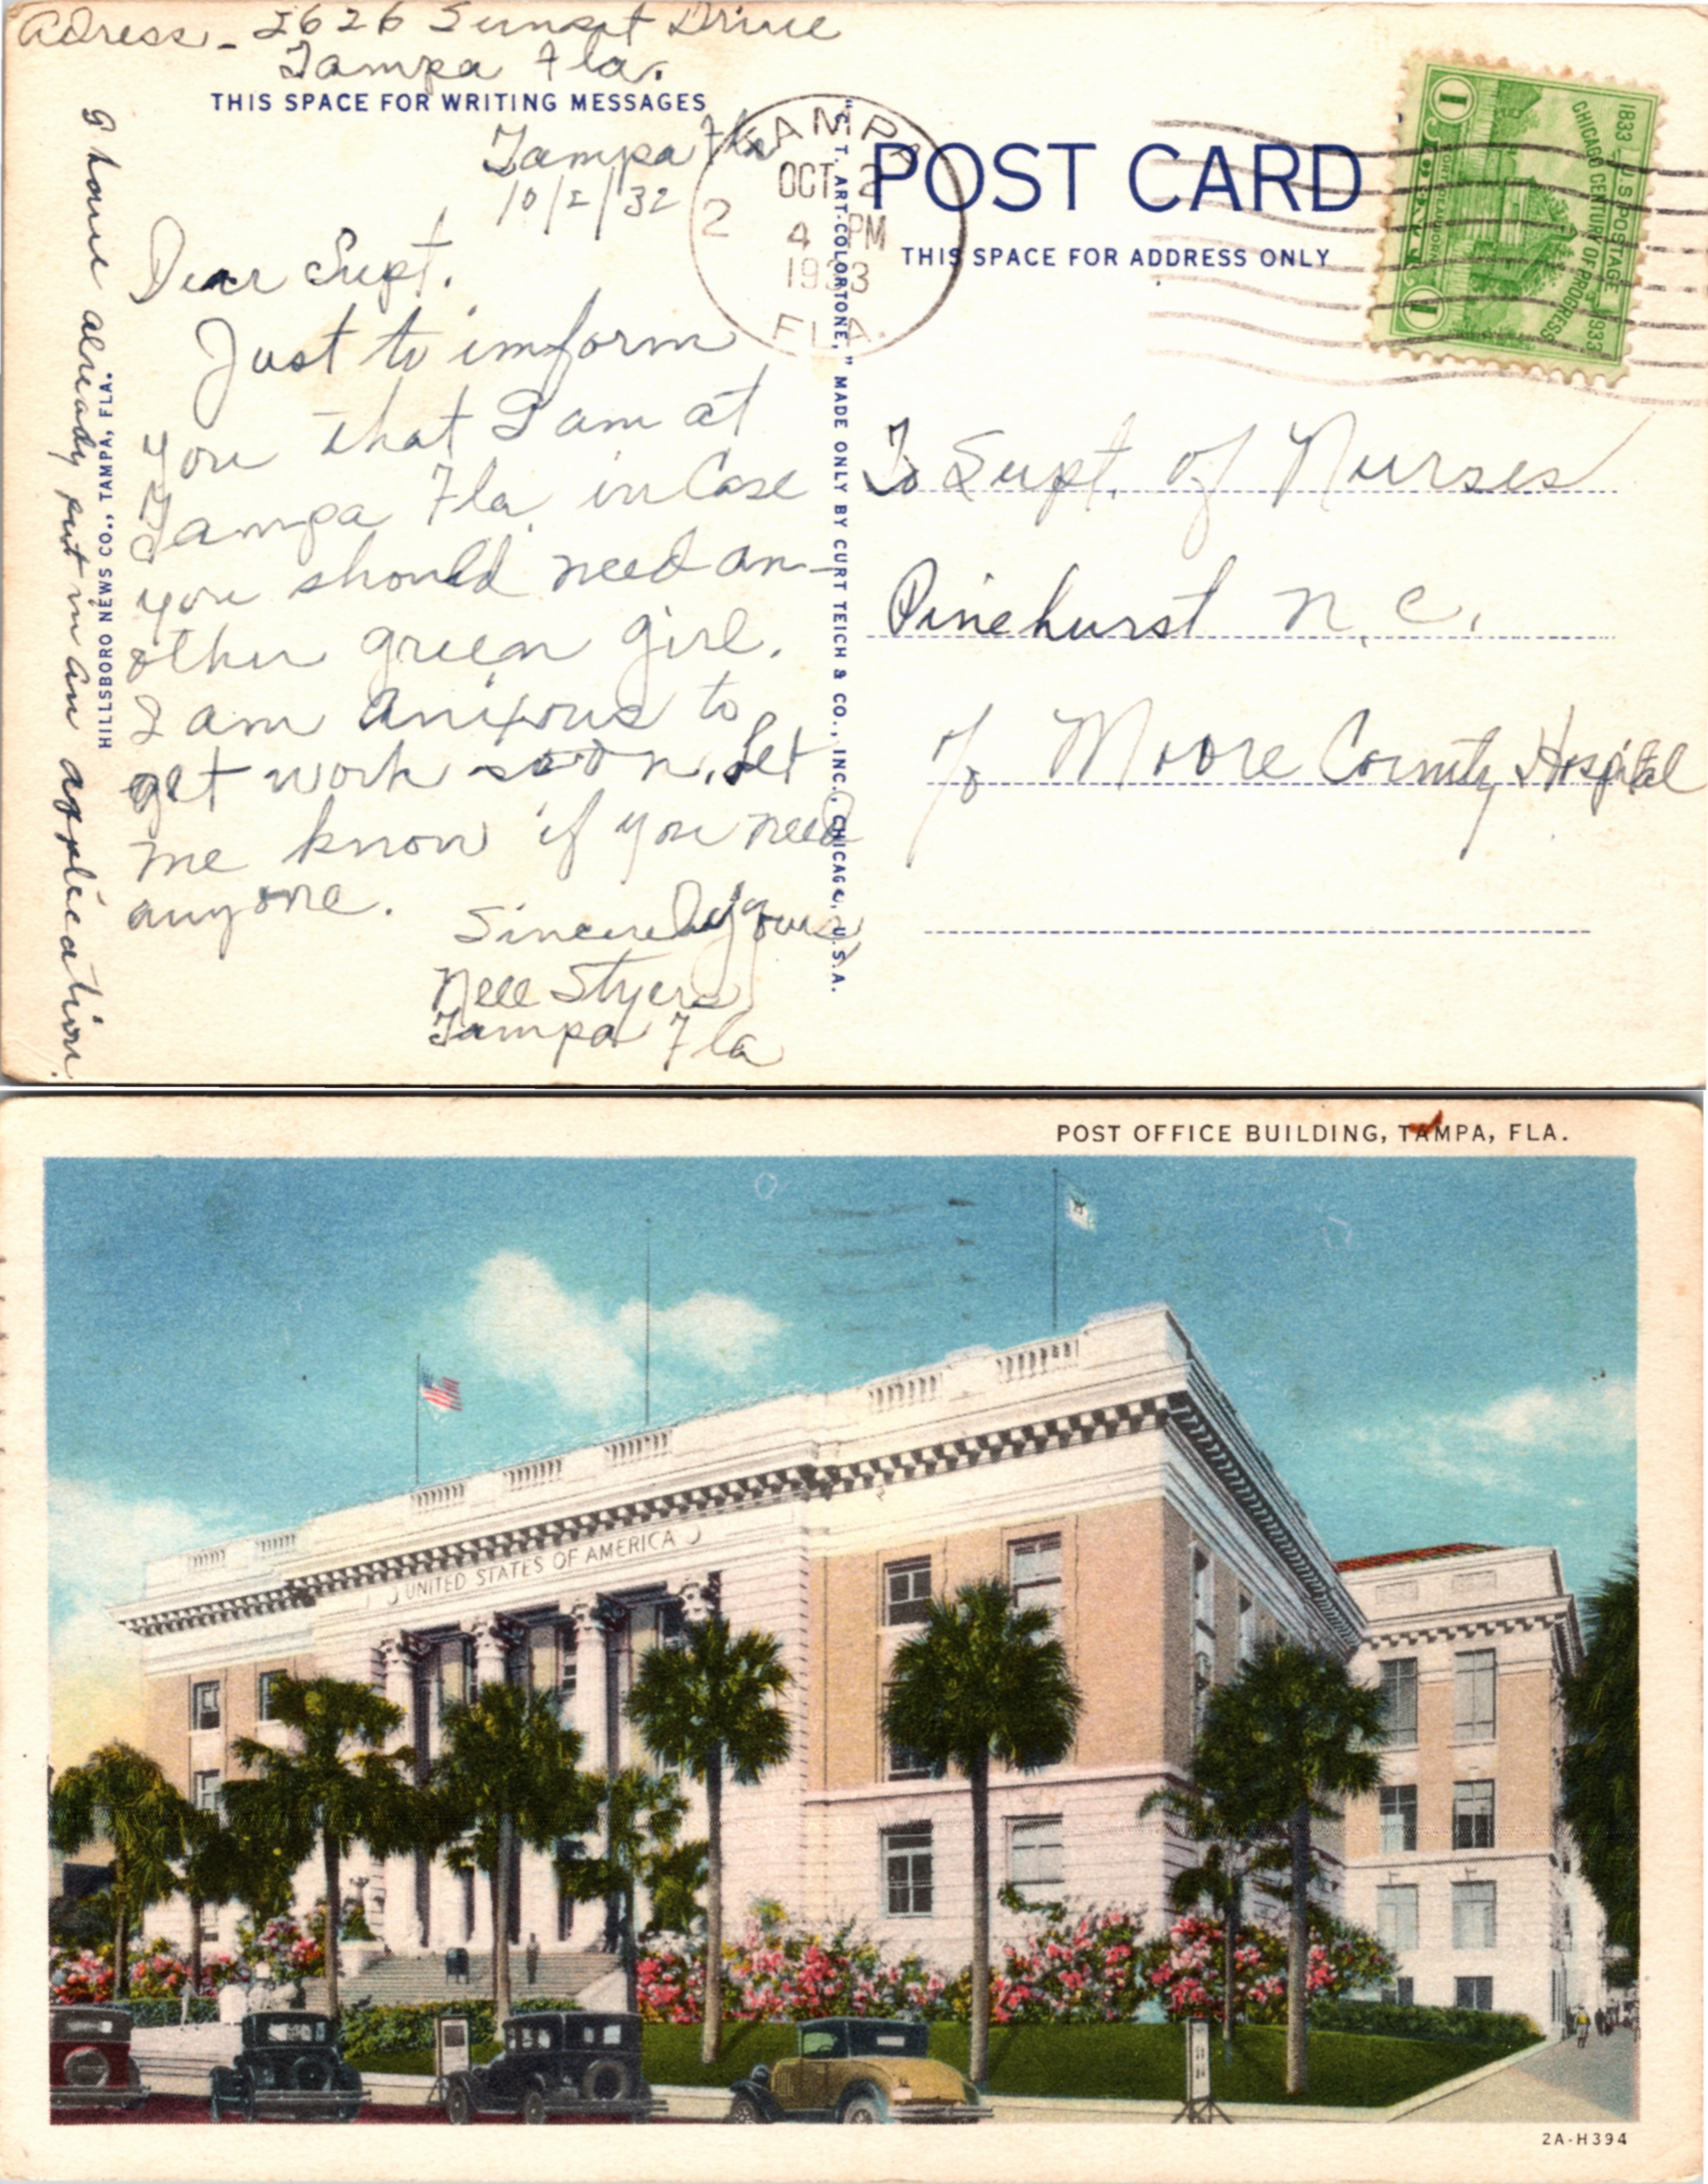 Adress - 2626 Sunset Drive
Tampa Fla.
THIS SPACE FOR WRITING MESSAGES
Tampa Fla
10/2/32
Dear Supt.
Just to imform
you that I am at
Tampa Fla. in Case
you should need an-
other green girl.
I am anixous to
get work soon. Let
me know if you need
anyone.
Sincerely yours,
Nell Styers
Tampa Fla
I have already put in an application.
HILLSBORO NEWS CO., TAMPA, FLA.
"C. T. ART-COLORTONE," MADE ONLY BY CURT TEICH & CO., INC., CHICAGO, U.S.A.
TAMPA
OCT 2
2
4 PM
1933
FLA.
POST CARD
THIS SPACE FOR ADDRESS ONLY
1833 U.S. POSTAGE 1933
CHICAGO CENTURY OF PROGRESS
FORT DEARBORN
1
1
To Supt. of Nurses
Pinehurst N.C.
c/o Moore County Hospital
POST OFFICE BUILDING, TAMPA, FLA.
UNITED STATES OF AMERICA
2A-H394